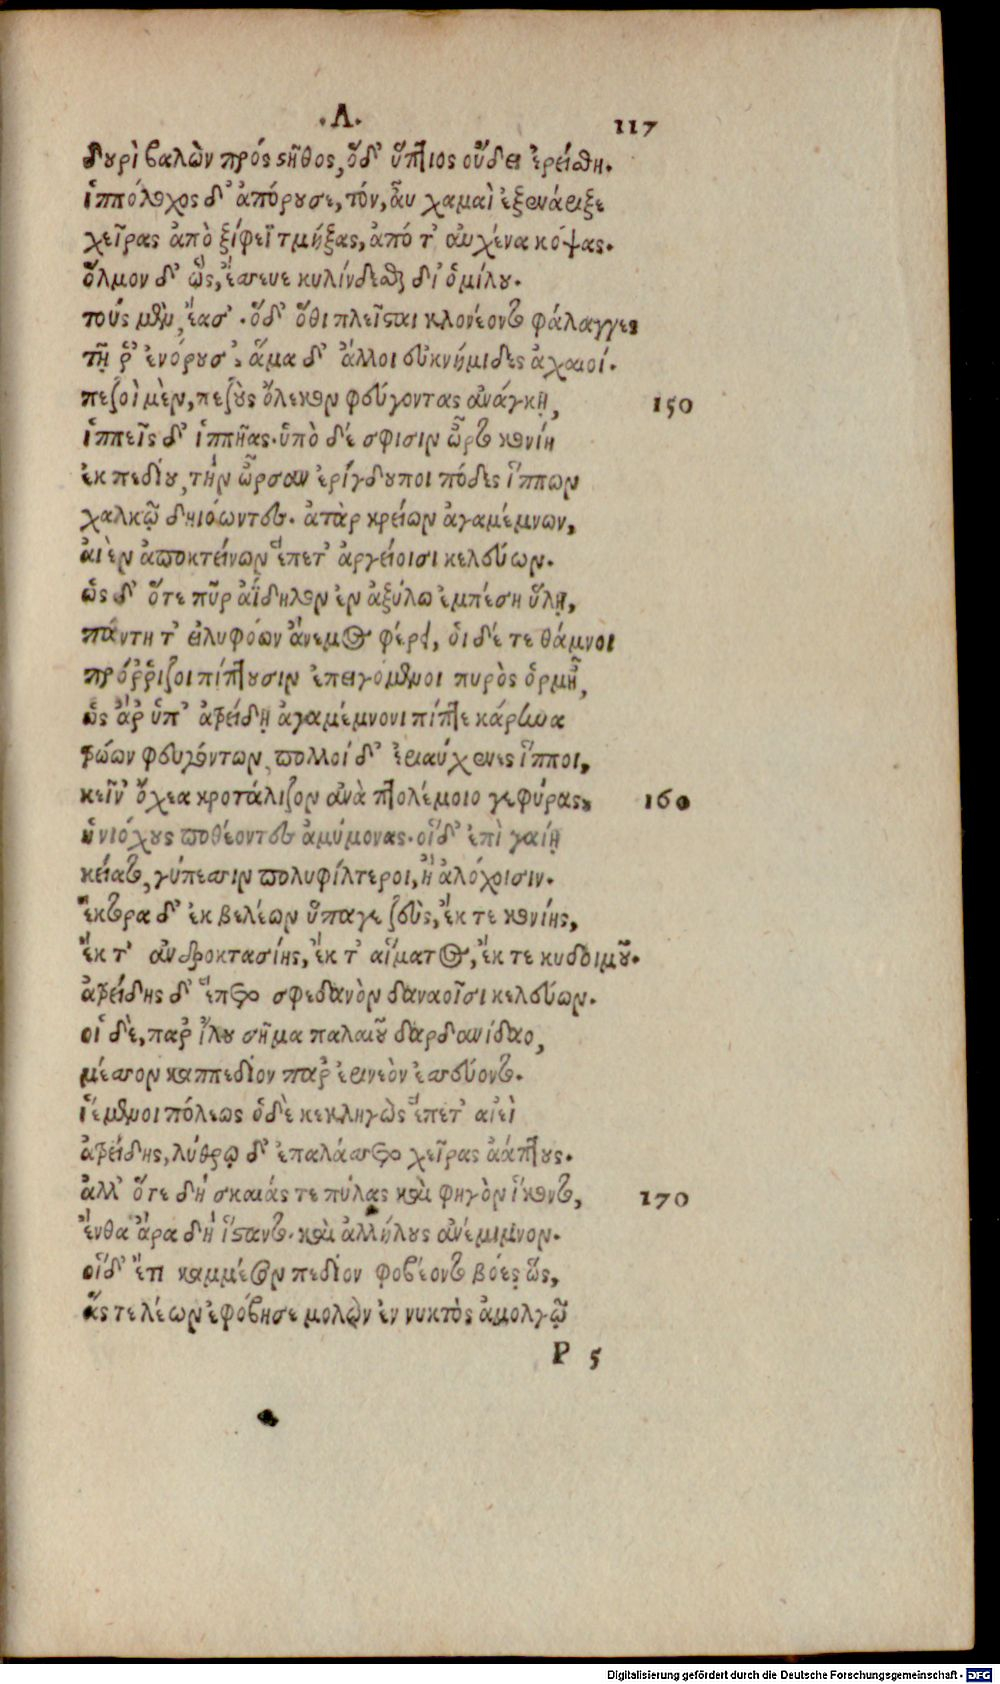 .Λ. 117
δουρὶ βαλὼν πρός στῆθος, ὅδ' ὕπτιος οὔδει ἐρείσθη.
ἱππόλοχος δ' ἀπόρουσε, τόν, αὖ χαμαὶ ἐξενάριξε
χεῖρας ἀπὸ ξίφεϊ τμήξας, ἀπό τ' αὐχένα κόψας.
ὅλμον δ' ὣς, ἔσσευε κυλίνδεσθαι δι' ὁμίλου.
τοὺς μὲν, ἔασ'. ὅδ' ὅθι πλεῖσται κλονέοντο φάλαγγες
τῇ ῥ' ἐνόρουσ', ἅμα δ' ἄλλοι ἐϋκνήμιδες ἀχαιοί.
πεζοὶ μὲν, πεζοὺς ὄλεκον φεύγοντας ἀνάγκῃ, 150
ἱππεῖς δ' ἱππῆας. ὑπὸ δέ σφισιν ὦρτο κονίη
ἐκ πεδίου, τὴν ὦρσαν ἐρίγδουποι πόδες ἵππων
χαλκῷ δηιόωντες. ἀτὰρ κρείων ἀγαμέμνων,
αἰὲν ἀποκτείνων ἕπετ' ἀργείοισι κελεύων.
ὡς δ' ὅτε πῦρ ἀΐδηλον ἐν ἀξύλῳ ἐμπέσῃ ὕλῃ,
πάντῃ τ' εἰλυφόων ἄνεμος φέρει, οἱ δέ τε θάμνοι
πρόῤῥιζοι πίπτουσιν ἐπειγόμενοι πυρὸς ὁρμῇ,
ὣς ἄρ' ὑπ' ἀτρείδῃ ἀγαμέμνονι πῖπτε κάρηνα
τρώων φευγόντων, πολλοὶ δ' ἐριαύχενες ἵπποι,
κείν' ὄχεα κροτάλιζον ἀνὰ πτολέμοιο γεφύρας, 160
ἡνιόχους ποθέοντες ἀμύμονας. οἵδ' ἐπὶ γαίῃ
κείατο, γύπεσσιν πολυφίλτεροι, ἢ ἀλόχοισιν.
ἕκτορα δ' ἐκ βελέων ὕπαγε ζεὺς, ἔκ τε κονίης,
ἔκ τ' ἀνδροκτασίης, ἔκ τ' αἵματος, ἔκ τε κυδοιμοῦ.
ἀτρείδης δ' ἕπετο σφεδανὸν δαναοῖσι κελεύων.
οἱ δὲ, παρ' ἴλου σῆμα παλαιοῦ δαρδανίδαο,
μέσσον καππεδίον παρ' ἐρινεὸν ἐσσεύοντο.
ἱέμενοι πόλεως ὁδὲ κεκληγὼς ἕπετ' αἰεὶ
ἀτρείδης, λύθρῳ δ' ἐπαλάσσετο χεῖρας ἀάπτους.
ἀλλ' ὅτε δὴ σκαιάς τε πύλας καὶ φηγὸν ἵκοντο, 170
ἔνθα ἄρα δὴ ἵσταντο. καὶ ἀλλήλους ἀνέμιμνον.
οἵδ' ἔτι καμμέσον πεδίον φοβέοντο βόες ὣς,
ἅς τε λέων ἐφόβησε μολὼν ἐν νυκτὸς ἀμολγῷ
P 5
Digitalisierung gefördert durch die Deutsche Forschungsgemeinschaft - DFG